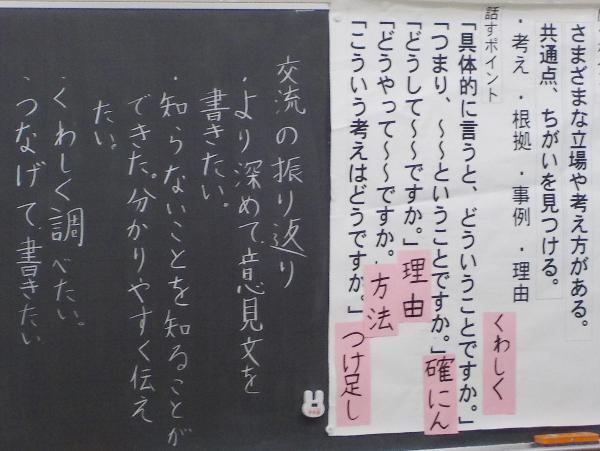 さまざまな立場や考え方がある。
共通点、ちがいを見つける。
・考え・根拠・事例・理由
話すポイント
「具体的に言うと、どういうことですか。」
くわしく
「つまり、～～ということですか。」
確にん
「どうして～～ですか。」
理由
「どうやって～～ですか。」
方法
「こういう考えはどうですか。」
つけ足し
交流の振り返り
・より深めて、意見文を
書きたい。
・知らないことを知ることが
できた。分かりやすく伝え
たい。
・くわしく調べたい。
・つなげて、書きたい